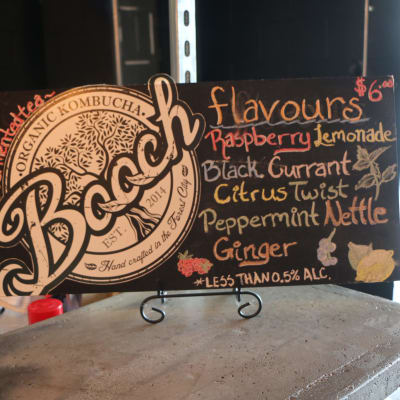 ORGANIC KOMBUCHA
Booch
EST. 2014
Hand crafted in the Forest City
$6.00
flavours
Raspberry Lemonade
Black Currant
Citrus Twist
Peppermint Nettle
Ginger
*LESS THAN 0.5% ALC.